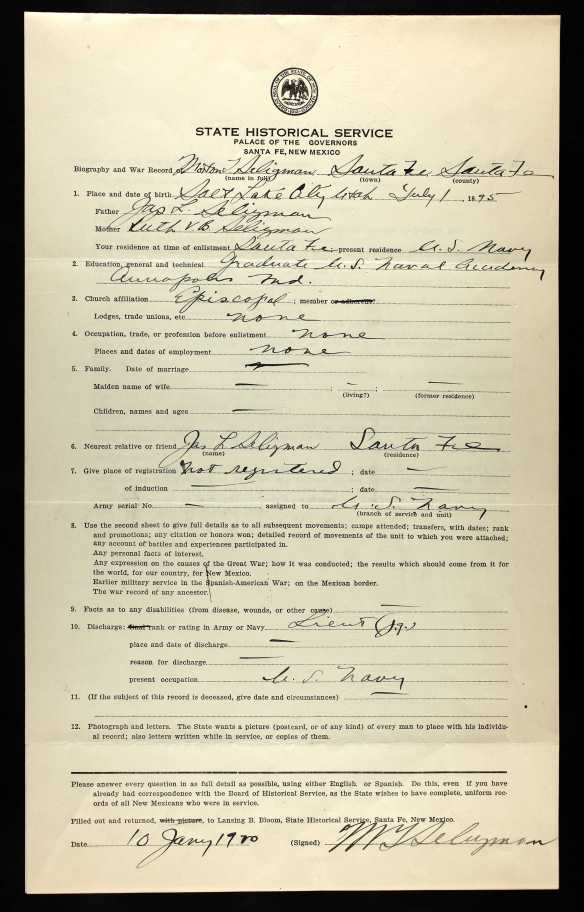 STATE HISTORICAL SERVICE
PALACE OF THE GOVERNORS
SANTA FE, NEW MEXICO
Biography and War Record of Morton Seligman Santa Fe Santa Fe
(name in full) (town) (county)
1. Place and date of birth Salt Lake City Utah July 1, 1895
Father Jas L. Seligman
Mother Ruth V B Seligman
Your residence at time of enlistment Santa Fe present residence U.S. Navy
2. Education, general and technical Graduate U.S. Naval Academy
Annapolis Md.
3. Church affiliation Episcopal; member or adherent?
Lodges, trade unions, etc none
4. Occupation, trade, or profession before enlistment none
Places and dates of employment none
5. Family. Date of marriage —
Maiden name of wife — ; — ; —
(living?) (former residence)
Children, names and ages —
6. Nearest relative or friend Jas L Seligman Santa Fe
(name) (residence)
7. Give place of registration not registered ; date —
of induction — ; date —
Army serial No. — , assigned to U.S. Navy
(branch of service and unit)
8. Use the second sheet to give full details as to all subsequent movements; camps attended; transfers, with dates; rank
and promotions; any citation or honors won; detailed record of movements of the unit to which you were attached;
any account of battles and experiences participated in.
Any personal facts of interest.
Any expression on the causes of the Great War; how it was conducted; the results which should come from it for
the world, for our country, for New Mexico.
Earlier military service in the Spanish-American War; on the Mexican border.
The war record of any ancestor.
9. Facts as to any disabilities (from disease, wounds, or other cause) —
10. Discharge: final rank or rating in Army or Navy Lieut (j.g.)
place and date of discharge —
reason for discharge —
present occupation U.S. Navy
11. (If the subject of this record is deceased, give date and circumstances) —
12. Photograph and letters. The State wants a picture (postcard, or of any kind) of every man to place with his individu-
al record; also letters written while in service, or copies of them.
Please answer every question in as full detail as possible, using either English or Spanish. Do this, even if you have
already had correspondence with the Board of Historical Service, as the State wishes to have complete, uniform rec-
ords of all New Mexicans who were in service.
Filled out and returned, with picture, to Lansing B. Bloom, State Historical Service, Santa Fe, New Mexico.
Date 10 Jany 1920 (Signed) M T Seligman